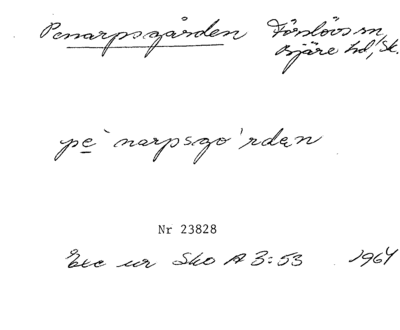 Penarpsgården Förslövs sn,
Bjäre hd, Sk.
pe` narpsgo´rdęn
Nr 23828
Exc ur Sko A 3:53 1964